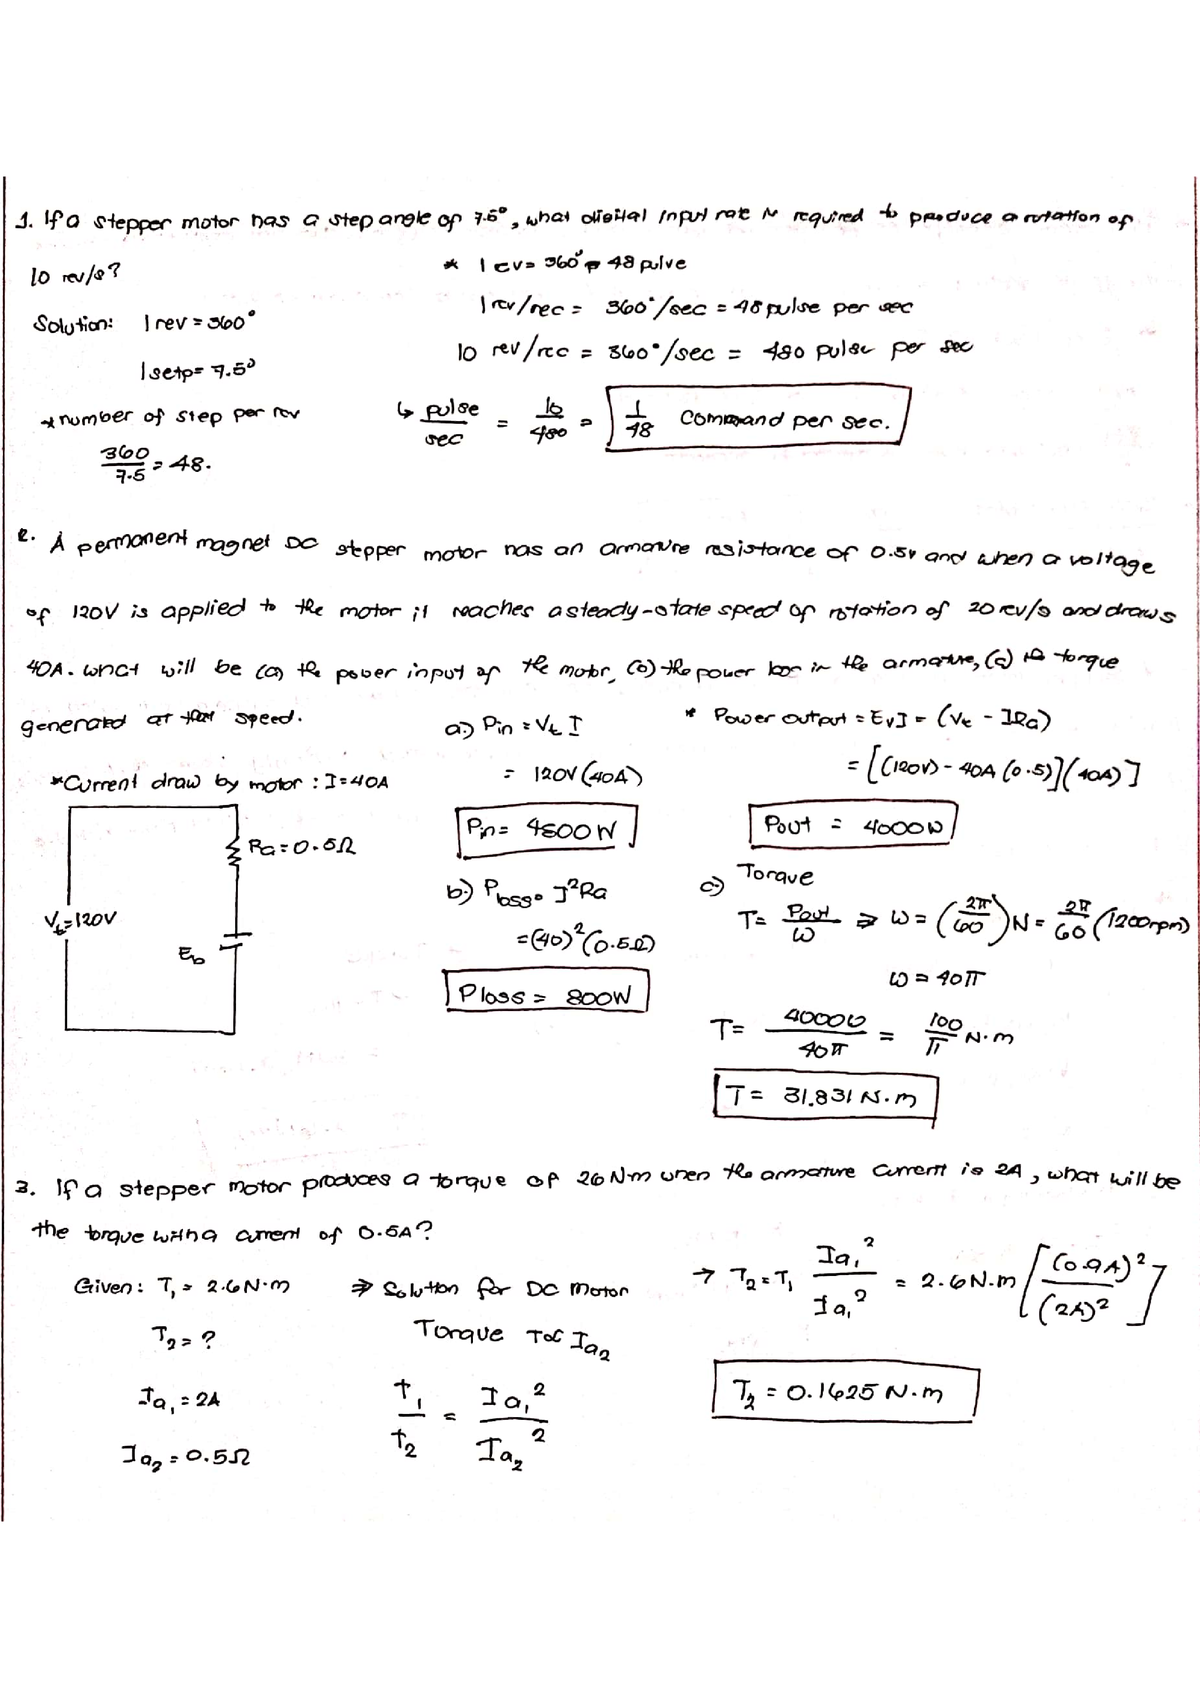 1. If a stepper motor has a step angle of 7.5°, what digital input rate is required to produce a rotation of
10 rev/s?
Solution: 1 rev = 360°
1 setp = 7.5°
* number of step per rev
360/7.5 = 48.
* 1 ev = 360° = 48 pulve
1 rev/sec = 360°/sec = 48 pulse per sec
10 rev/sec = 360°/sec = 480 pulse per sec
↳ pulse/sec = 10/480 = 1/48 Command per sec.
2. A permanent magnet DC stepper motor has an armature resistance of 0.5 and when a voltage
of 120V is applied to the motor it reaches a steady-state speed of rotation of 20 rev/s and draws
40A. what will be (a) the power input of the motor, (b) the power loss in the armature, (c) the torque
generated at that speed.
* Current draw by motor : I = 40A
Ra = 0.5Ω
Vt = 120V
Eb
a.) Pin = Vt I
= 120V (40A)
Pin = 4800 W
b.) Ploss = I²Ra
= (40)² (0.5Ω)
Ploss = 800W
* Power output = EvI = (Vt - IRa)
= [(120V) - 40A (0.5)](40A)]
Pout = 4000W
c.) Torque
T = Pout/ω ⇒ ω = (2π/60) N = 2π/60 (1200rpm)
ω = 40π
T = 4000W/40π = 100/π N.m
T = 31.831 N.m
3. If a stepper motor produces a torque of 26 Nm when the armature current is 2A, what will be
the torque with a current of 0.5A?
Given: T₁ = 2.6 N·m
T₂ = ?
Ia₁ = 2A
Ia₂ = 0.5Ω
⇒ Solution for DC Motor
Torque T∝ Ia₂
t₁/t₂ = Ia₁²/Ia₂²
→ T₂ = T₁ Ia₁²/Ia₁² = 2.6 N.m [(0.9A)²/(2A)²]
T₂ = 0.1625 N.m